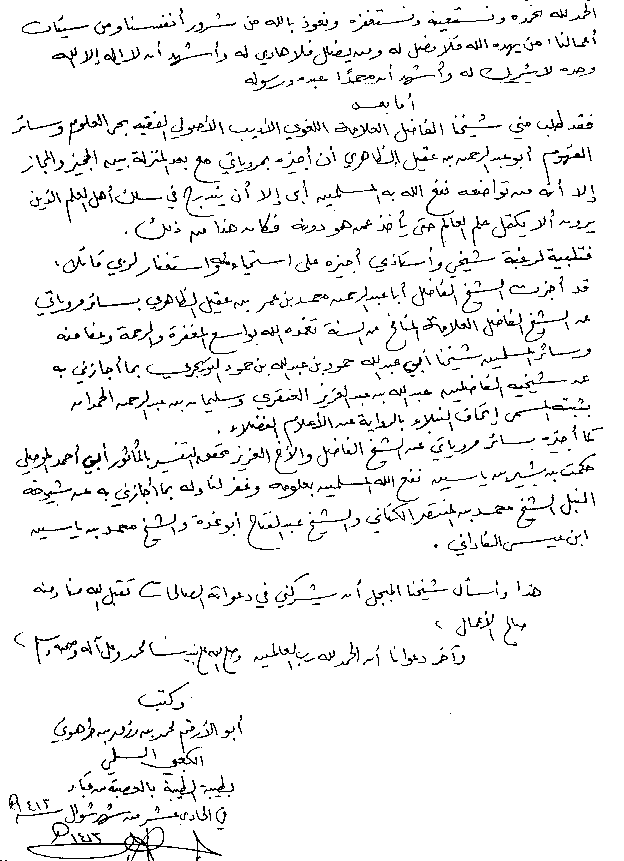 الحمد لله نحمده ونستعينه ونستغفره ونعوذ بالله من شرور أنفسنا ومن سيئات
أعمالنا، من يهده الله فلا مضل له ومن يضلل فلا هادي له وأشهد أن لا إله إلا الله
وحده لا شريك له وأشهد أن محمدًا عبده ورسوله
أما بعد
فقد طلب مني شيخنا الفاضل العلامة اللغوي الأديب الأصولي الفقيه بحر العلوم وسائر
الفهوم أبو عبد الرحمن بن عقيل الظاهري أن أجيزه بمروياتي مع بعد المنزلة بين المجيز والمجاز
إلا أنه من تواضعه نفع الله به المسلمين أبى إلا أن يندرج في سلك أهل العلم الذين
يرون ألا يكمل علم العالم حتى يأخذ عمن هو دونه فكان هذا من ذلك .
فتلبية لرغبة شيخي وأستاذي أجيزه على استحياء واستغفار لربي قائلا :
قد أجزت الشيخ الفاضل أبا عبد الرحمن محمد بن عمر بن عقيل الظاهري بسائر مروياتي
عن الشيخ الفاضل العلامة المنافح عن السنة تغمده الله بواسع المغفرة والرحمة وعفا عنه
وسائر المسلمين شيخنا أبي عبد الله حمود بن عبد الله بن حمود التويجري بما أجازني به
عن شيخيه الفاضلين عبد الله بن عبد العزيز العنقري وسليمان بن عبد الرحمن الحمدان
بثبته المسمى إتحاف النبلاء بالرواية عن الأعلام الفضلاء .
كما أجيزه بسائر مروياتي عن الشيخ الفاضل والأخ العزيز محقق التفسير بالمأثور أبي أحمد الموصلي
حكمت بن بشير بن ياسين نفع الله المسلمين بعلومه وغفر لنا وله بما أجازني به عن شيوخه
النبل الشيخ محمد بن المنتصر الكتاني والشيخ عبد الفتاح أبو غدة والشيخ محمد بن ياسين
ابن عيسى الفاداني .
هذا وأسأل شيخنا المبجل أن يشركني في دعواته الصالحات تقبل الله منا ومنه
صالح الأعمال ،
وآخر دعوانا أن الحمد لله رب العالمين وصلى الله على نبينا محمد وعلى آله وصحبه وسلم ،
وكتب
أبو الأرقم محمد بن رزق بن طرهوني
الكعبي السلمي
بطيبة الطيبة بالعصبة من قباء
في الحادي عشر من شهر شوال سنة ١٤١٣ هـ
١٤١٣ هـ